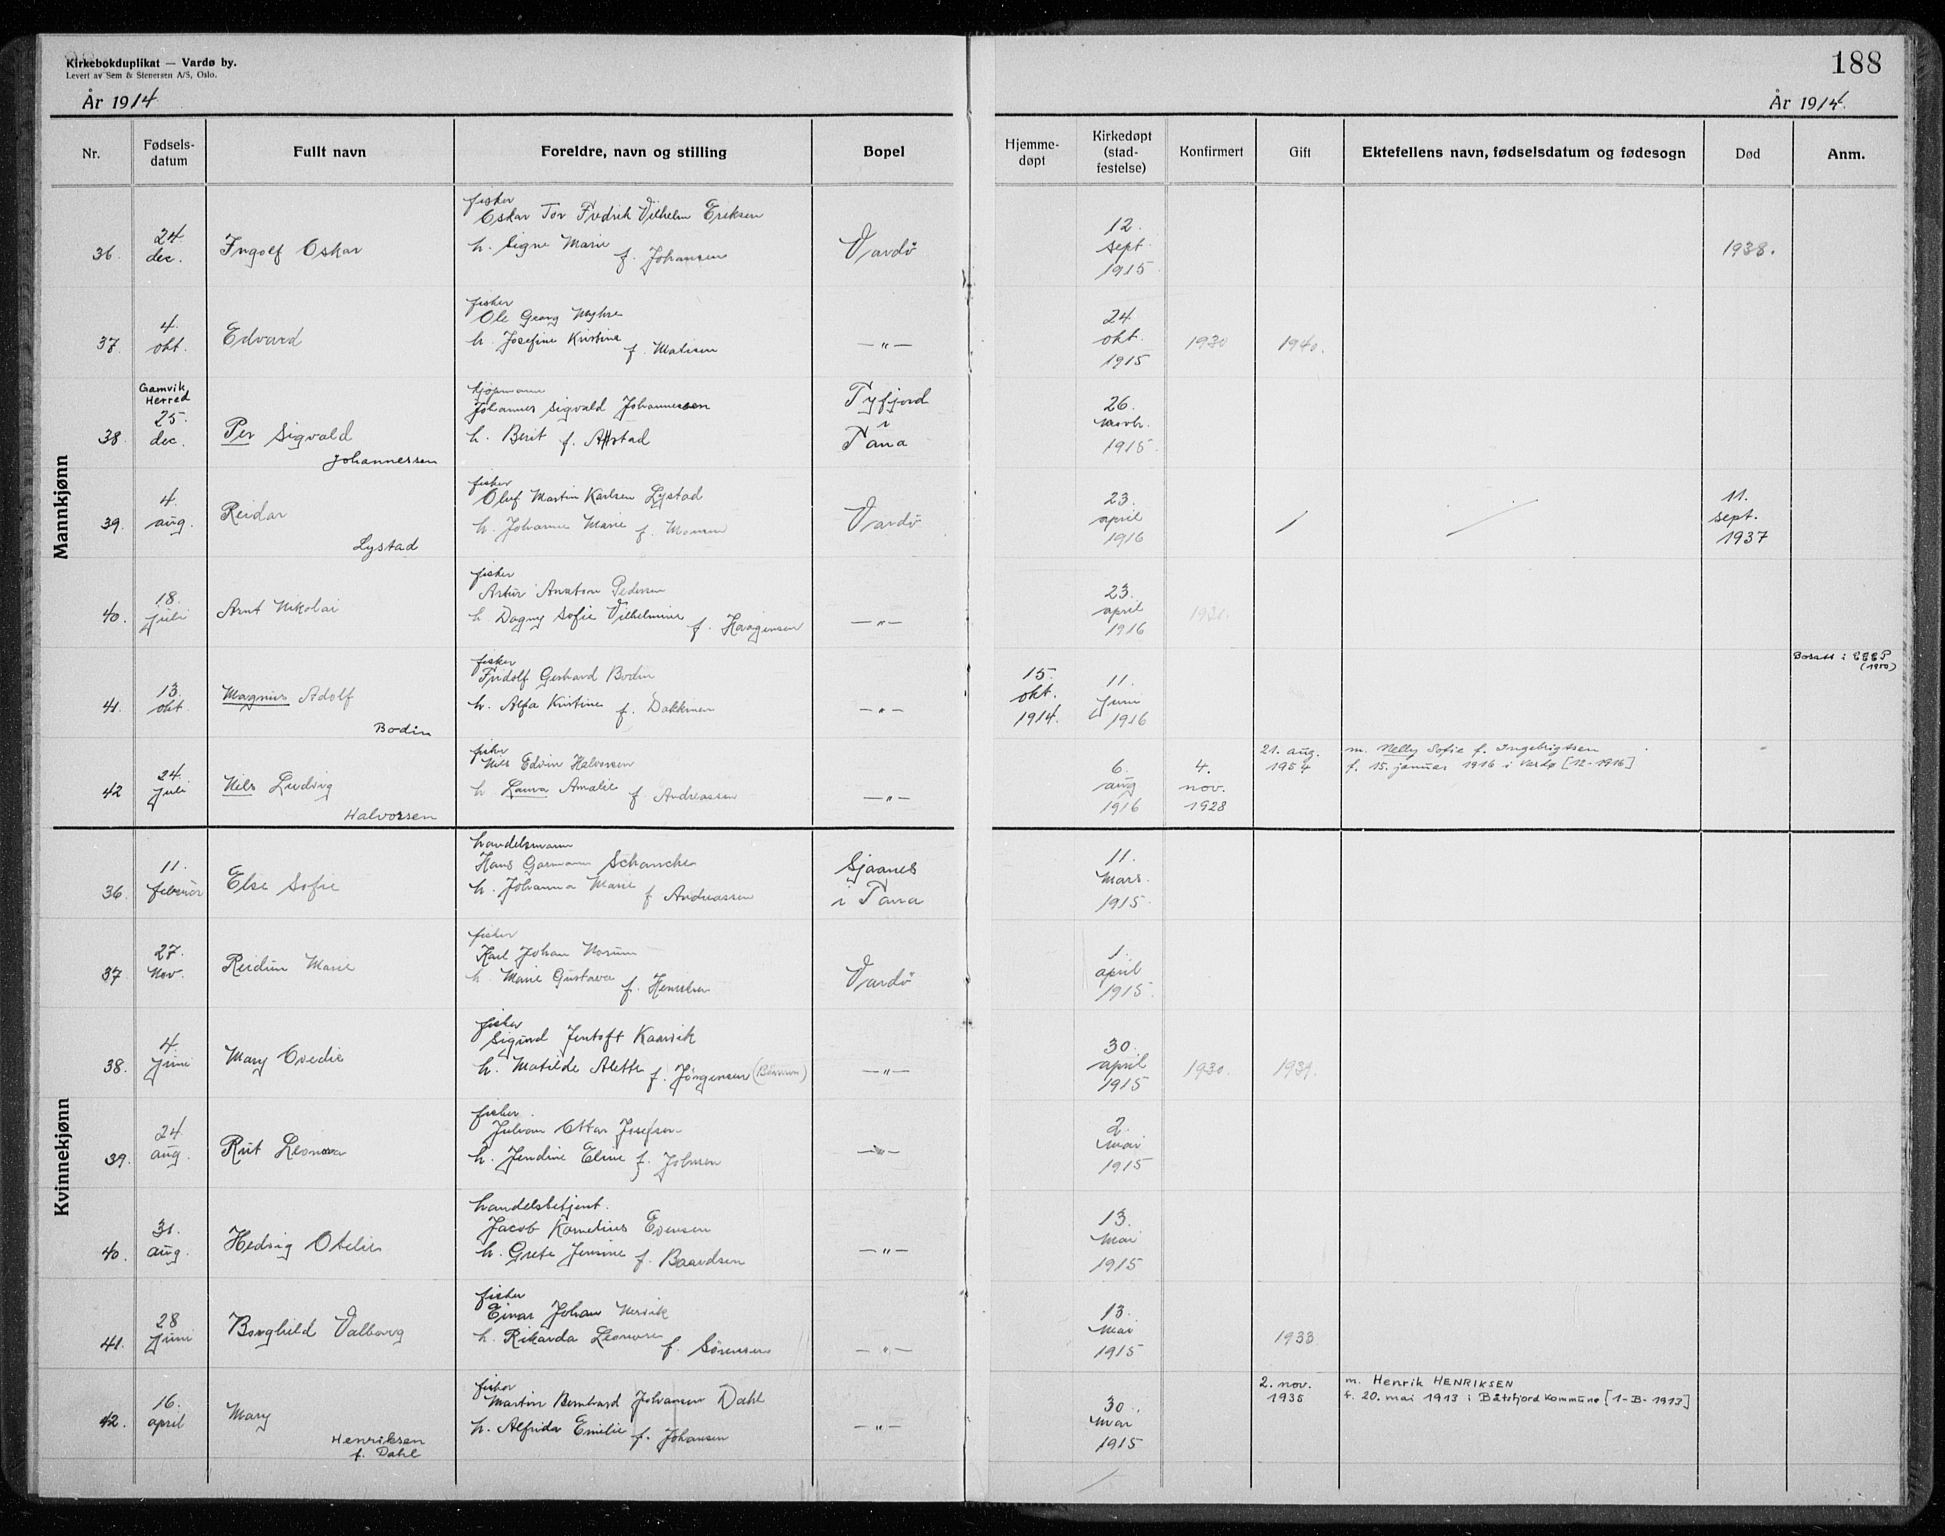 Kirkebokduplikat — Vardø by.
Levert av Sem & Stenersen A/S, Oslo.
188
År 1914
År 1914.
Nr.
Fødselsdatum
Fullt navn
Foreldre, navn og stilling
Bopel
Hjemmedøpt
Kirkedøpt (stadfestelse)
Konfirmert
Gift
Ektefellens navn, fødselsdatum og fødesogn
Død
Anm.
Mannkjønn
36.
24. dec.
Ingolf Oskar
fisker
Oskar Tor Fredrik Vilhelm Eriksen
h. Signe Marie f. Johansen
Vardö
12. sept. 1915
1938.
37.
4. okt.
Edvard
fisker
Ole Georg
h. Josefine Kristine f. Matisen
—"—
24 okt. 1915
1930
1940.
Gamvik Herred
38.
25. dec.
Per Sigvald
Johannessen
kjøpmann
Johannes Sigvald Johannessen
h. Berit f.
Tyfjord i Tana
26. novbr. 1915
39.
4. aug.
Reidar
Lystad
fisker
Oluf Martin Karlsen Lystad
h. Johanne Marie f. Monsen
Vardö
23. april 1916
/
/
11. sept. 1937
40.
18. juli
Arnt Nikolai
fisker
Artur Anaton Pedersen
h. Dagny Sofie Vilhelmine f. Haagensen
—"—
23. april 1916
1930.
41.
13. okt.
Magnus Adolf
Bodin
fisker
Fridolf Gerhard Bodin
h. Alfa Kristine f.
—"—
15. okt. 1914.
11. juni 1916
Bosatt i
(1950)
42
24. juli
Nils Ludvig
Halvorsen
fisker
Nils Edvin Halvorsen
h. Laura Amalie f. Andreassen
—"—
6. aug 1916
4. nov. 1928
21. aug. 1954
m. Nelly Sofie f. Ingebrigtsen
f. 15. januar 1916 i Vardø [12-1916]
Kvinnekjønn
36.
11. februar
Else Sofie
handelsmann
Hans Garmann Schanche
h. Johanna Marie f. Andreassen
Sjaanes
i Tana
11. Mars. 1915.
37.
27. Nov.
Reidun Marie
fisker
Karl Johan Norum
h. Marie Gustava f. Henriksen
Vardö
1. april 1915.
38.
4. juni
Mary Ovedie
fisker
Sigurd Jentoft Kaarvik
h. Matilde Alette f. Jörgensen
—"—
30. april 1915
1930.
1939.
39.
24. aug.
Rut Leonora
fisker.
Julian Ottar Josefsen
h. Jendine Eline f. Johnsen
—"—
2. mai 1915
40.
31. aug.
Hedvig Otelie
handelsbetjent.
Jacob Kornelius Evensen
h. Grete Jensine f. Baardsen
—"—
13. Mai 1915
41.
28 juni
Borghild Valborg
fisker
Einar Johan Nervik
h. Rikarda Leonore f. Sörensen
—"—
13. Mai 1915
1933
42.
16. april
Mary
Henriksen
f. Dahl
fisker
Martin Bernhard Johansen Dahl
h. Alfrida Emilie f. Johansen
—"—
30. Mai 1915
2. nov. 1935
m. Henrik HENRIKSEN
f. 20. mai 1913 i Båtsfjord kommune [1-B-1913]
/